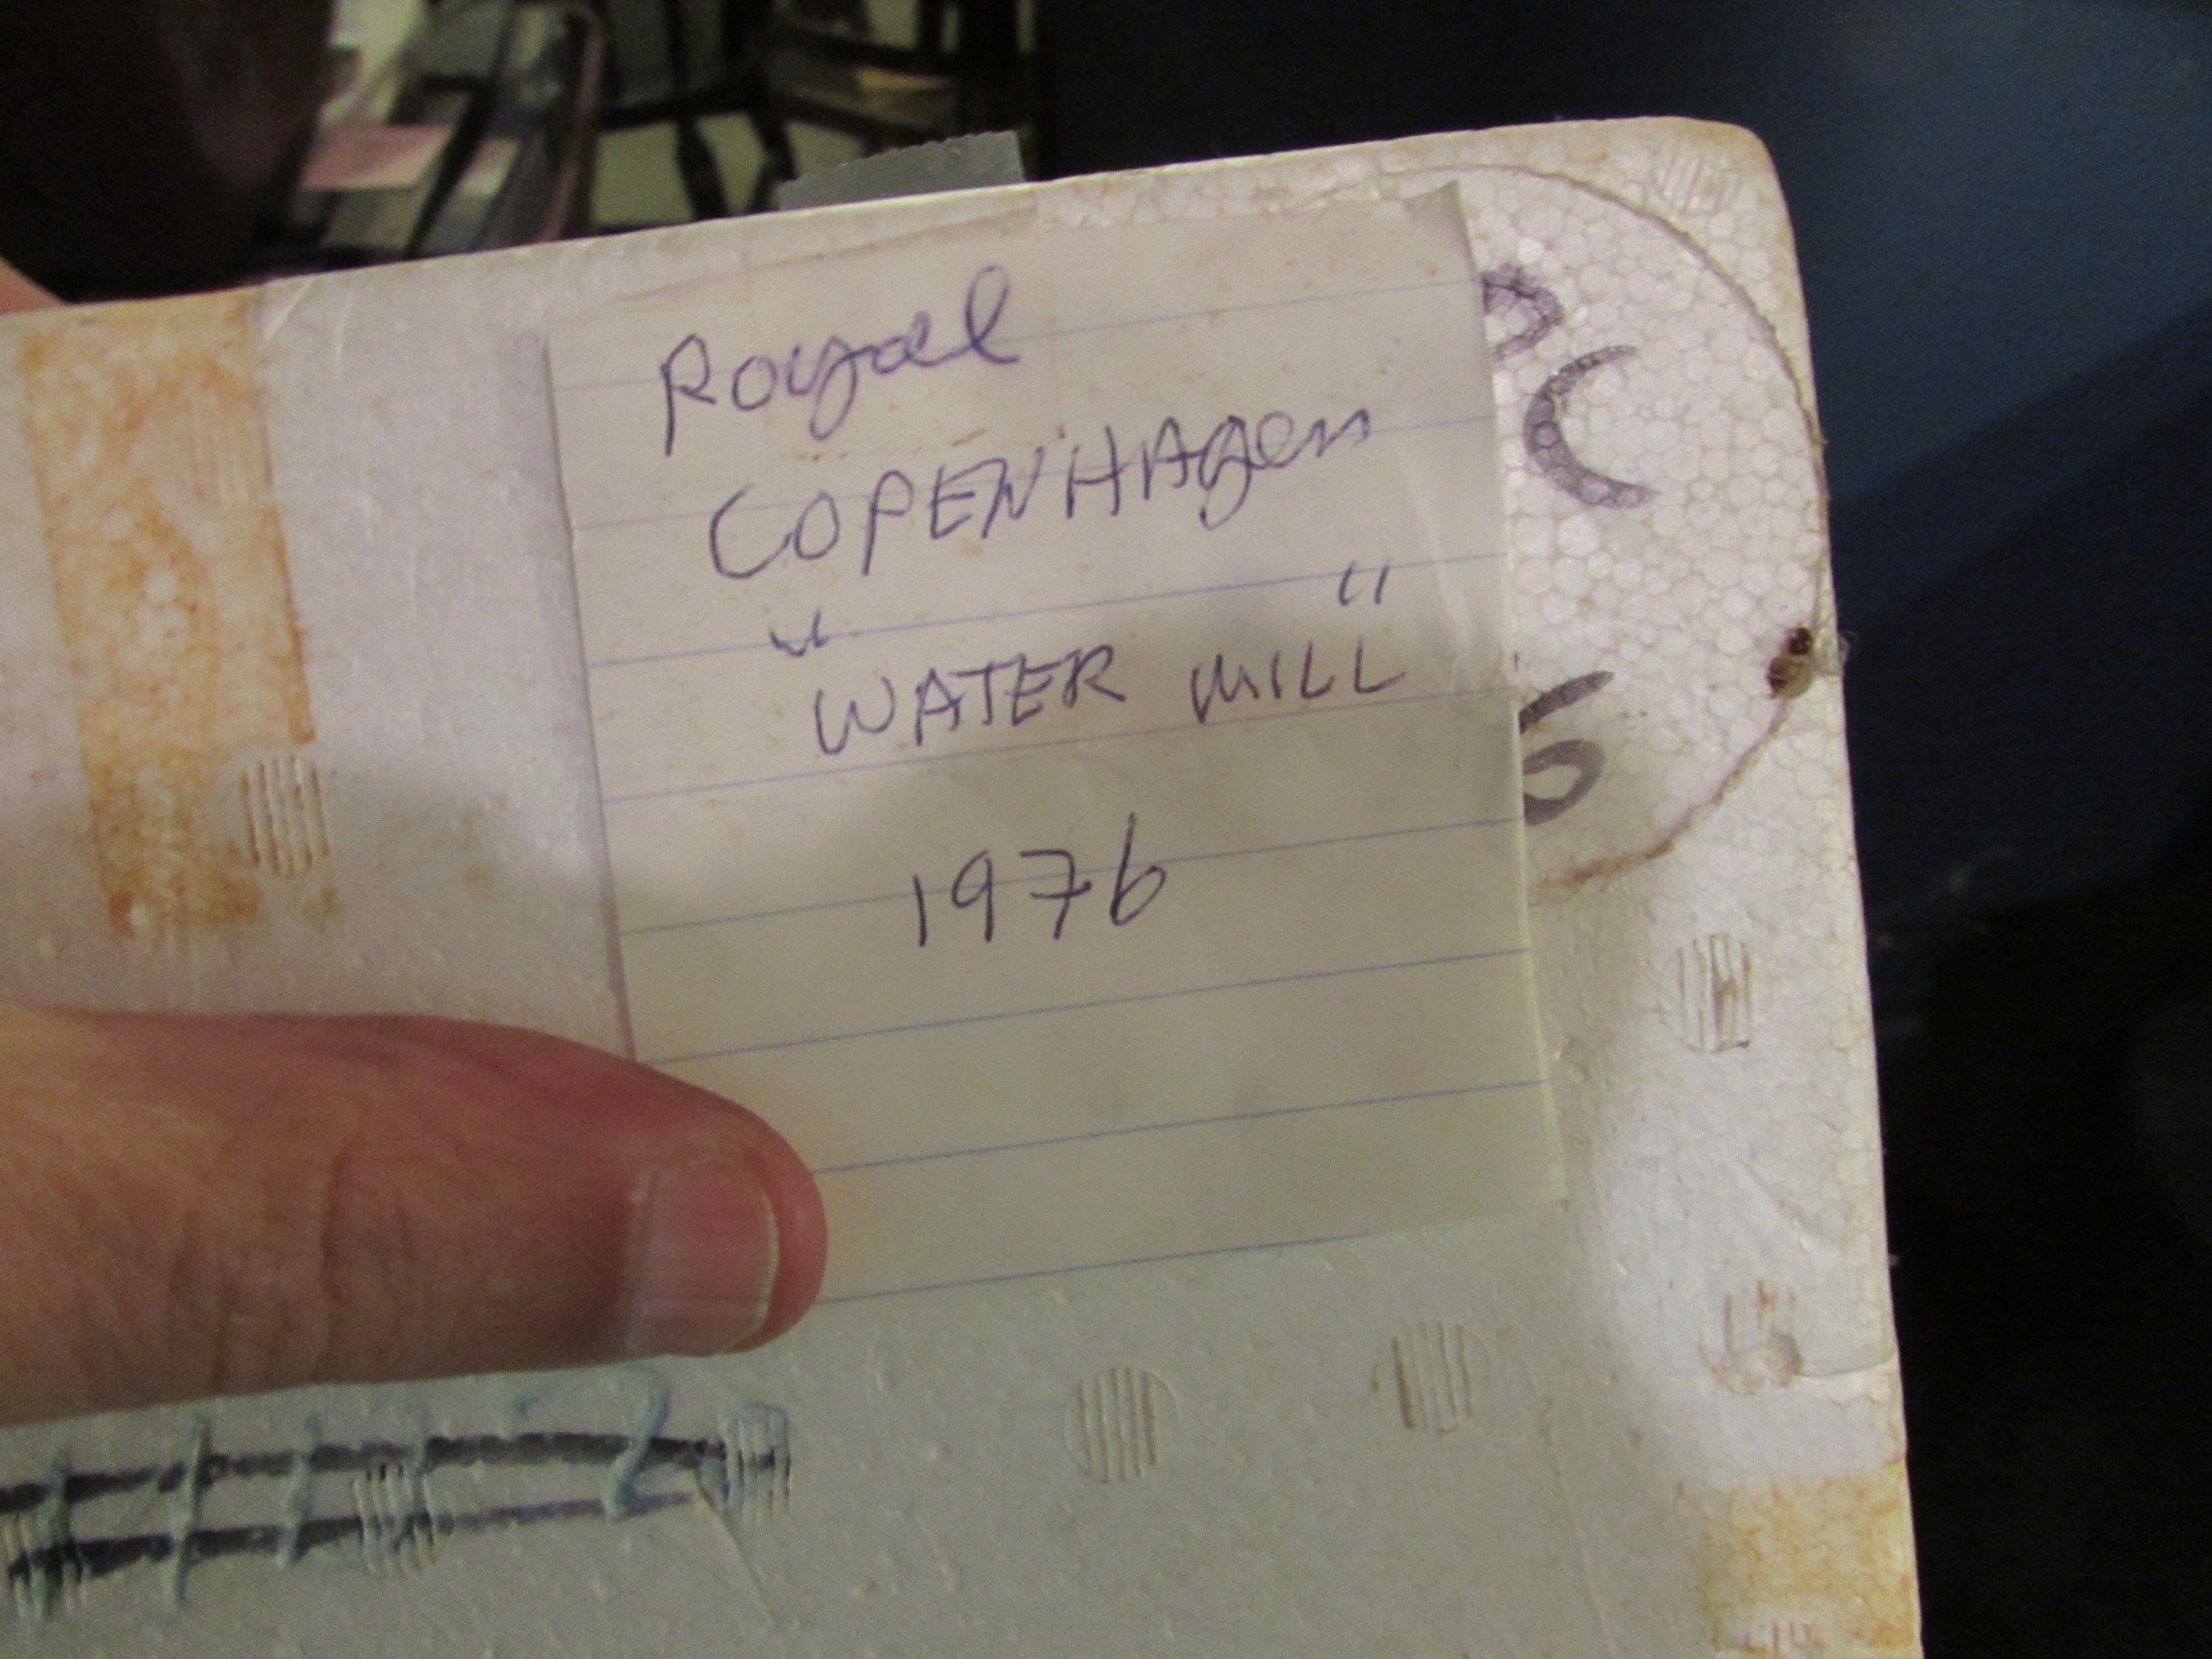 Royal
COPENHAgen
"WATER MILL"
1976
C
6